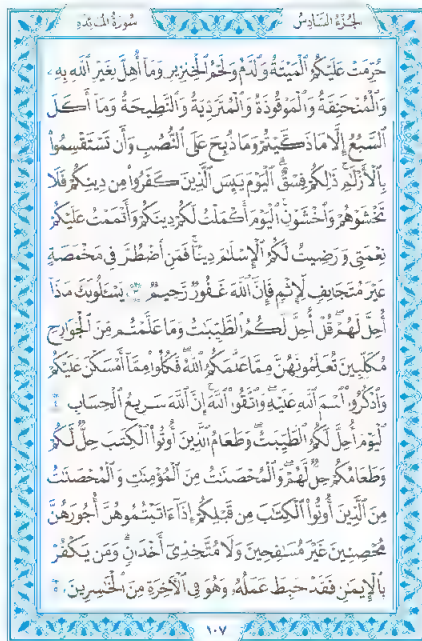 الجزء السادس سورة المائدة
حُرِّمَتْ عَلَيْكُمُ ٱلْمَيْتَةُ وَٱلدَّمُ وَلَحْمُ ٱلْخِنزِيرِ وَمَآ أُهِلَّ لِغَيْرِ ٱللَّهِ بِهِۦ
وَٱلْمُنْخَنِقَةُ وَٱلْمَوْقُوذَةُ وَٱلْمُتَرَدِّيَةُ وَٱلنَّطِيحَةُ وَمَآ أَكَلَ
ٱلسَّبُعُ إِلَّا مَا ذَكَّيْتُمْ وَمَا ذُبِحَ عَلَى ٱلنُّصُبِ وَأَن تَسْتَقْسِمُوا۟
بِٱلْأَزْلَٰمِ ۚ ذَٰلِكُمْ فِسْقٌ ۗ ٱلْيَوْمَ يَئِسَ ٱلَّذِينَ كَفَرُوا۟ مِن دِينِكُمْ فَلَا
تَخْشَوْهُمْ وَٱخْشَوْنِ ۚ ٱلْيَوْمَ أَكْمَلْتُ لَكُمْ دِينَكُمْ وَأَتْمَمْتُ عَلَيْكُمْ
نِعْمَتِى وَرَضِيتُ لَكُمُ ٱلْإِسْلَٰمَ دِينًا ۚ فَمَنِ ٱضْطُرَّ فِى مَخْمَصَةٍ
غَيْرَ مُتَجَانِفٍ لِّإِثْمٍ ۙ فَإِنَّ ٱللَّهَ غَفُورٌ رَّحِيمٌ ٣ يَسْـَٔلُونَكَ مَاذَآ
أُحِلَّ لَهُمْ ۖ قُلْ أُحِلَّ لَكُمُ ٱلطَّيِّبَٰتُ ۙ وَمَا عَلَّمْتُم مِّنَ ٱلْجَوَارِحِ
مُكَلِّبِينَ تُعَلِّمُونَهُنَّ مِمَّا عَلَّمَكُمُ ٱللَّهُ ۖ فَكُلُوا۟ مِمَّآ أَمْسَكْنَ عَلَيْكُمْ
وَٱذْكُرُوا۟ ٱسْمَ ٱللَّهِ عَلَيْهِ ۖ وَٱتَّقُوا۟ ٱللَّهَ ۚ إِنَّ ٱللَّهَ سَرِيعُ ٱلْحِسَابِ ٤
ٱلْيَوْمَ أُحِلَّ لَكُمُ ٱلطَّيِّبَٰتُ ۖ وَطَعَامُ ٱلَّذِينَ أُوتُوا۟ ٱلْكِتَٰبَ حِلٌّ لَّكُمْ
وَطَعَامُكُمْ حِلٌّ لَّهُمْ ۖ وَٱلْمُحْصَنَٰتُ مِنَ ٱلْمُؤْمِنَٰتِ وَٱلْمُحْصَنَٰتُ
مِنَ ٱلَّذِينَ أُوتُوا۟ ٱلْكِتَٰبَ مِن قَبْلِكُمْ إِذَآ ءَاتَيْتُمُوهُنَّ أُجُورَهُنَّ
مُحْصِنِينَ غَيْرَ مُسَٰفِحِينَ وَلَا مُتَّخِذِىٓ أَخْدَانٍ ۗ وَمَن يَكْفُرْ
بِٱلْإِيمَٰنِ فَقَدْ حَبِطَ عَمَلُهُۥ وَهُوَ فِى ٱلْءَاخِرَةِ مِنَ ٱلْخَٰسِرِينَ ٥
١٠٧